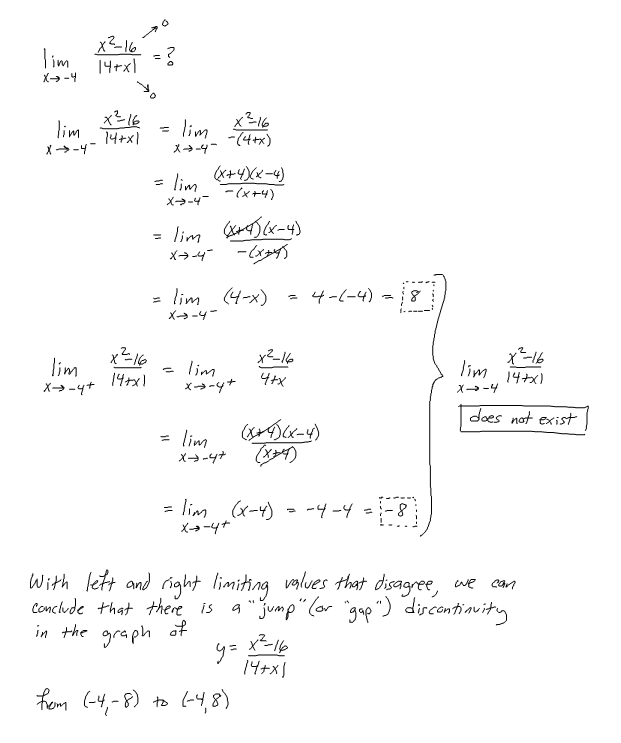 lim x→-4 (x²-16)/|4+x| = ?
→0
→0
lim x→-4⁻ (x²-16)/|4+x| = lim x→-4⁻ (x²-16)/-(4+x)
= lim x→-4⁻ (x+4)(x-4)/-(x+4)
= lim x→-4⁻ (x+4)(x-4)/-(x+4)
= lim x→-4⁻ (4-x) = 4-(-4) = 8
lim x→-4⁺ (x²-16)/|4+x| = lim x→-4⁺ (x²-16)/(4+x)
= lim x→-4⁺ (x+4)(x-4)/(x+4)
= lim x→-4⁺ (x-4) = -4-4 = -8
lim x→-4 (x²-16)/|4+x|
does not exist
With left and right limiting values that disagree, we can
conclude that there is a "jump" (or "gap") discontinuity
in the graph of
y = (x²-16)/|4+x|
from (-4,-8) to (-4,8)